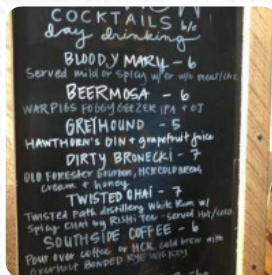 COCKTAILS b/c
day drinking
BLOODY MARY - 6
Served mild or spicy w/ or w/o meat/chz
BEERMOSA - 6
WARPIGS FOGGY GEEZER IPA + OJ
GREYHOUND - 5
HAWTHORN'S GIN + grapefruit juice
DIRTY BRONECKI - 7
OLD FORESTER bourbon, HCK COLD BREW,
cream + honey
TWISTED CHAI - 7
TWISTED Path distillery White Rum w/
Spicy CHAI by RISHI Tea - served Hot/cold
SOUTHSIDE COFFEE - 6
Pour over coffee or HCK cold brew with
overholt BONDED RYE WHISKEY